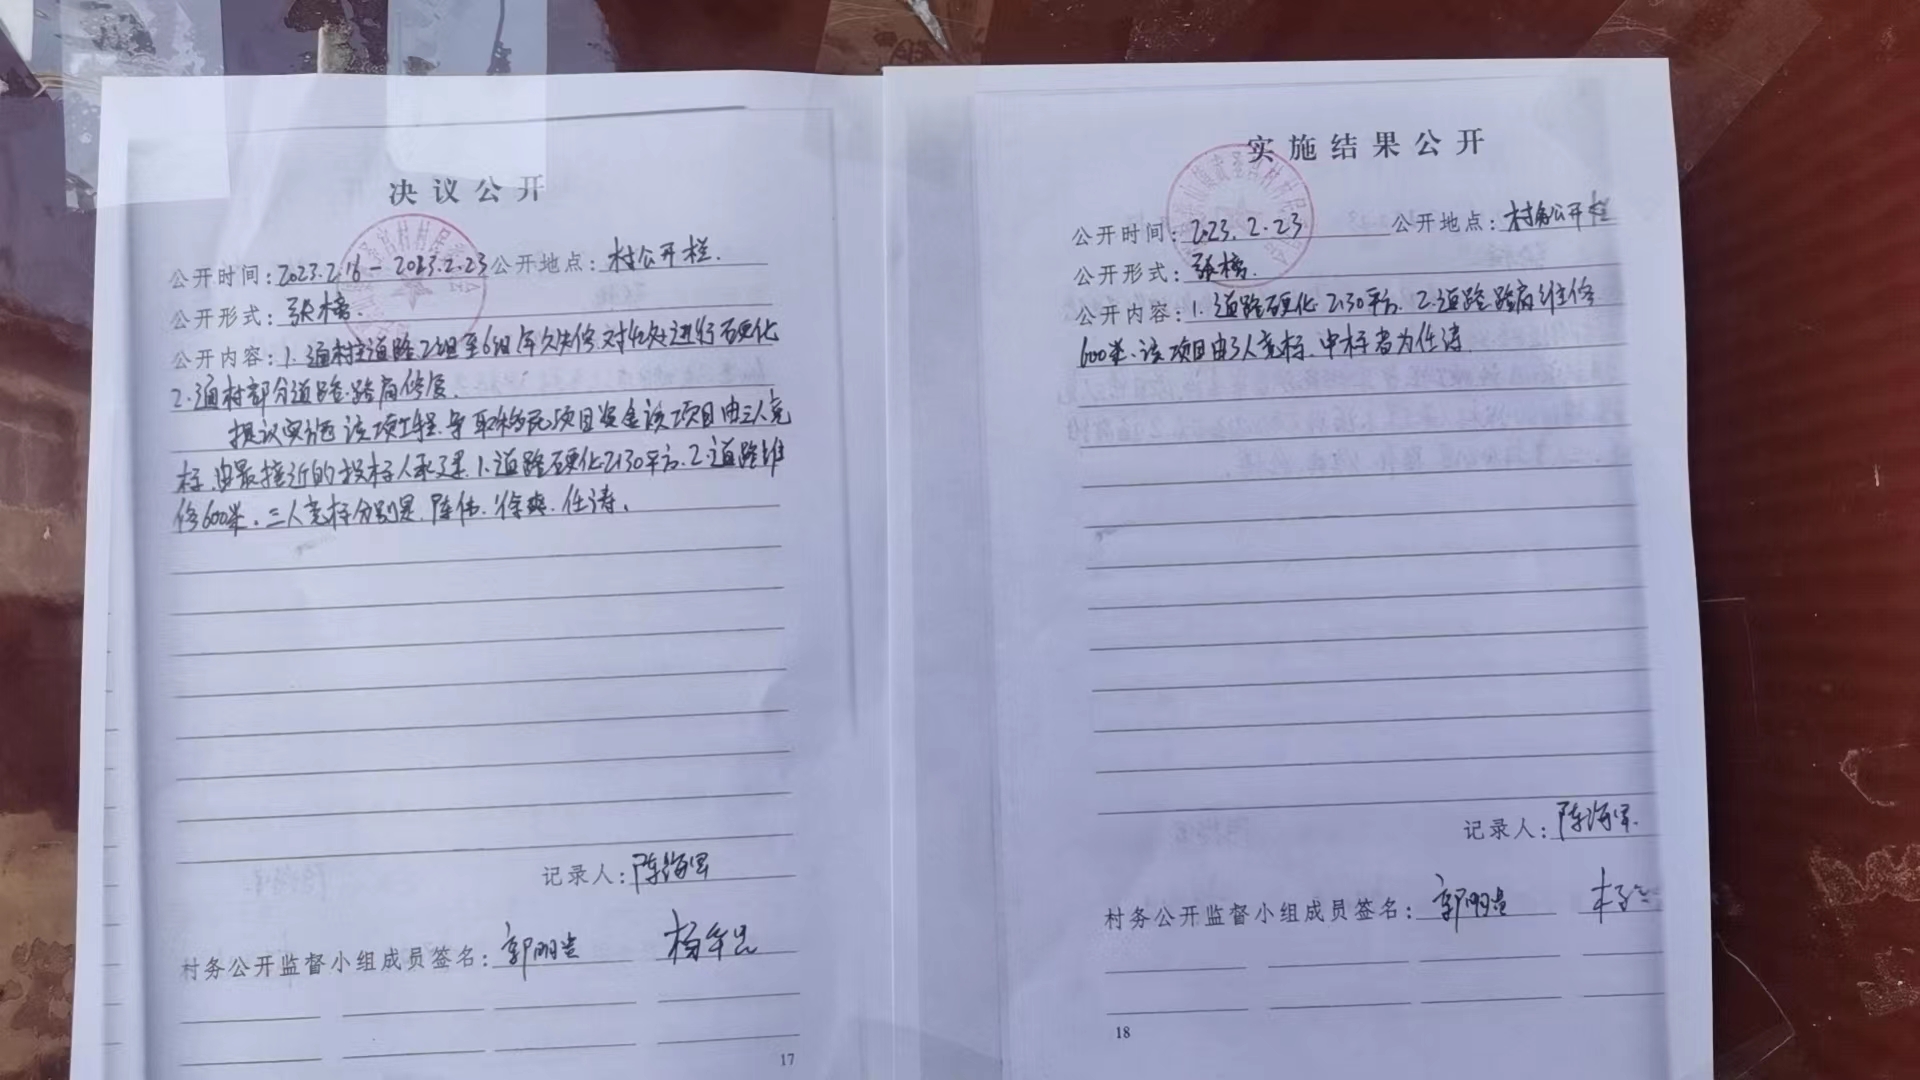 决议公开
公开时间：2023.2.16－2023.2.23 公开地点：村公开栏.
公开形式：张榜.
公开内容：1.通村主道路2组至6组年久失修.对4处进行硬化
2.通村部分道路路肩修复.
提议实施该项工程.争取移民项目资金该项目由三人竞
标.由最接近的投标人承建.1.道路硬化2130平方.2.道路维
修600米。三人竞标分别是.陈伟.徐爽.任涛.
记录人：陈海军
村务公开监督小组成员签名：郭明贵 杨
17
实施结果公开
公开时间：2023.2.23 公开地点：村务公开栏
公开形式：张榜.
公开内容：1.道路硬化2130平方.2.道路路肩维修
600米.该项目由3人竞标.中标者为任涛
记录人：陈海军.
村务公开监督小组成员签名：郭明贵
18